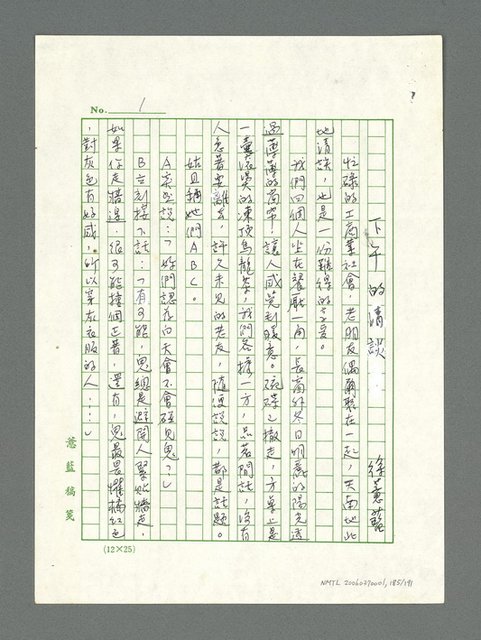 No. 1
下午的清談
徐薏藍
忙碌的工商業社會，老朋友偶爾聚在一起，天南地北
地清談，也是一份難得的享受。
我們四個人坐在餐廳一角，長窗外冬日明亮的陽光透
過薄薄的窗帘，讓人感覺到暖意。碗碟已撤走，方桌上是
一壺滾燙的凍頂烏龍茶，我們各據一方，品茗閒話，沒有
人急著要離去，許久未見的老友，隨便談談，都是話題。
姑且稱她們ABC。
A突然說：「妳們認為白天會不會碰見鬼？」
B立刻接下話：「有可能，鬼總是避開人緊貼牆走，
如果你走牆邊，很可能撞個正著，還有，鬼最畏懼橘紅色
，對灰色有好感，所以穿灰衣服的人……」
薏藍稿箋
(12×25)
NMTL 20060270001, 185/191